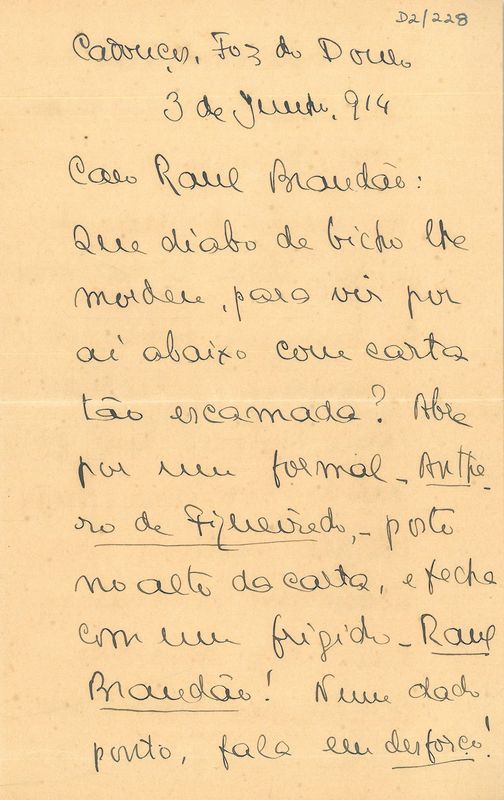 D2/228
Cadouços, Foz do Douro
3 de Junho, 914
Caro Raul Brandão:
Que diabo de bicho lhe
mordeu, para vir por
aí abaixo com carta
tão escamada? Abre
por um formal - Anthe-
ro de Figueiredo, - posto
no alto da carta, e fecha
com um frigido - Raul
Brandão! Num dado
ponto, fala em desforço!